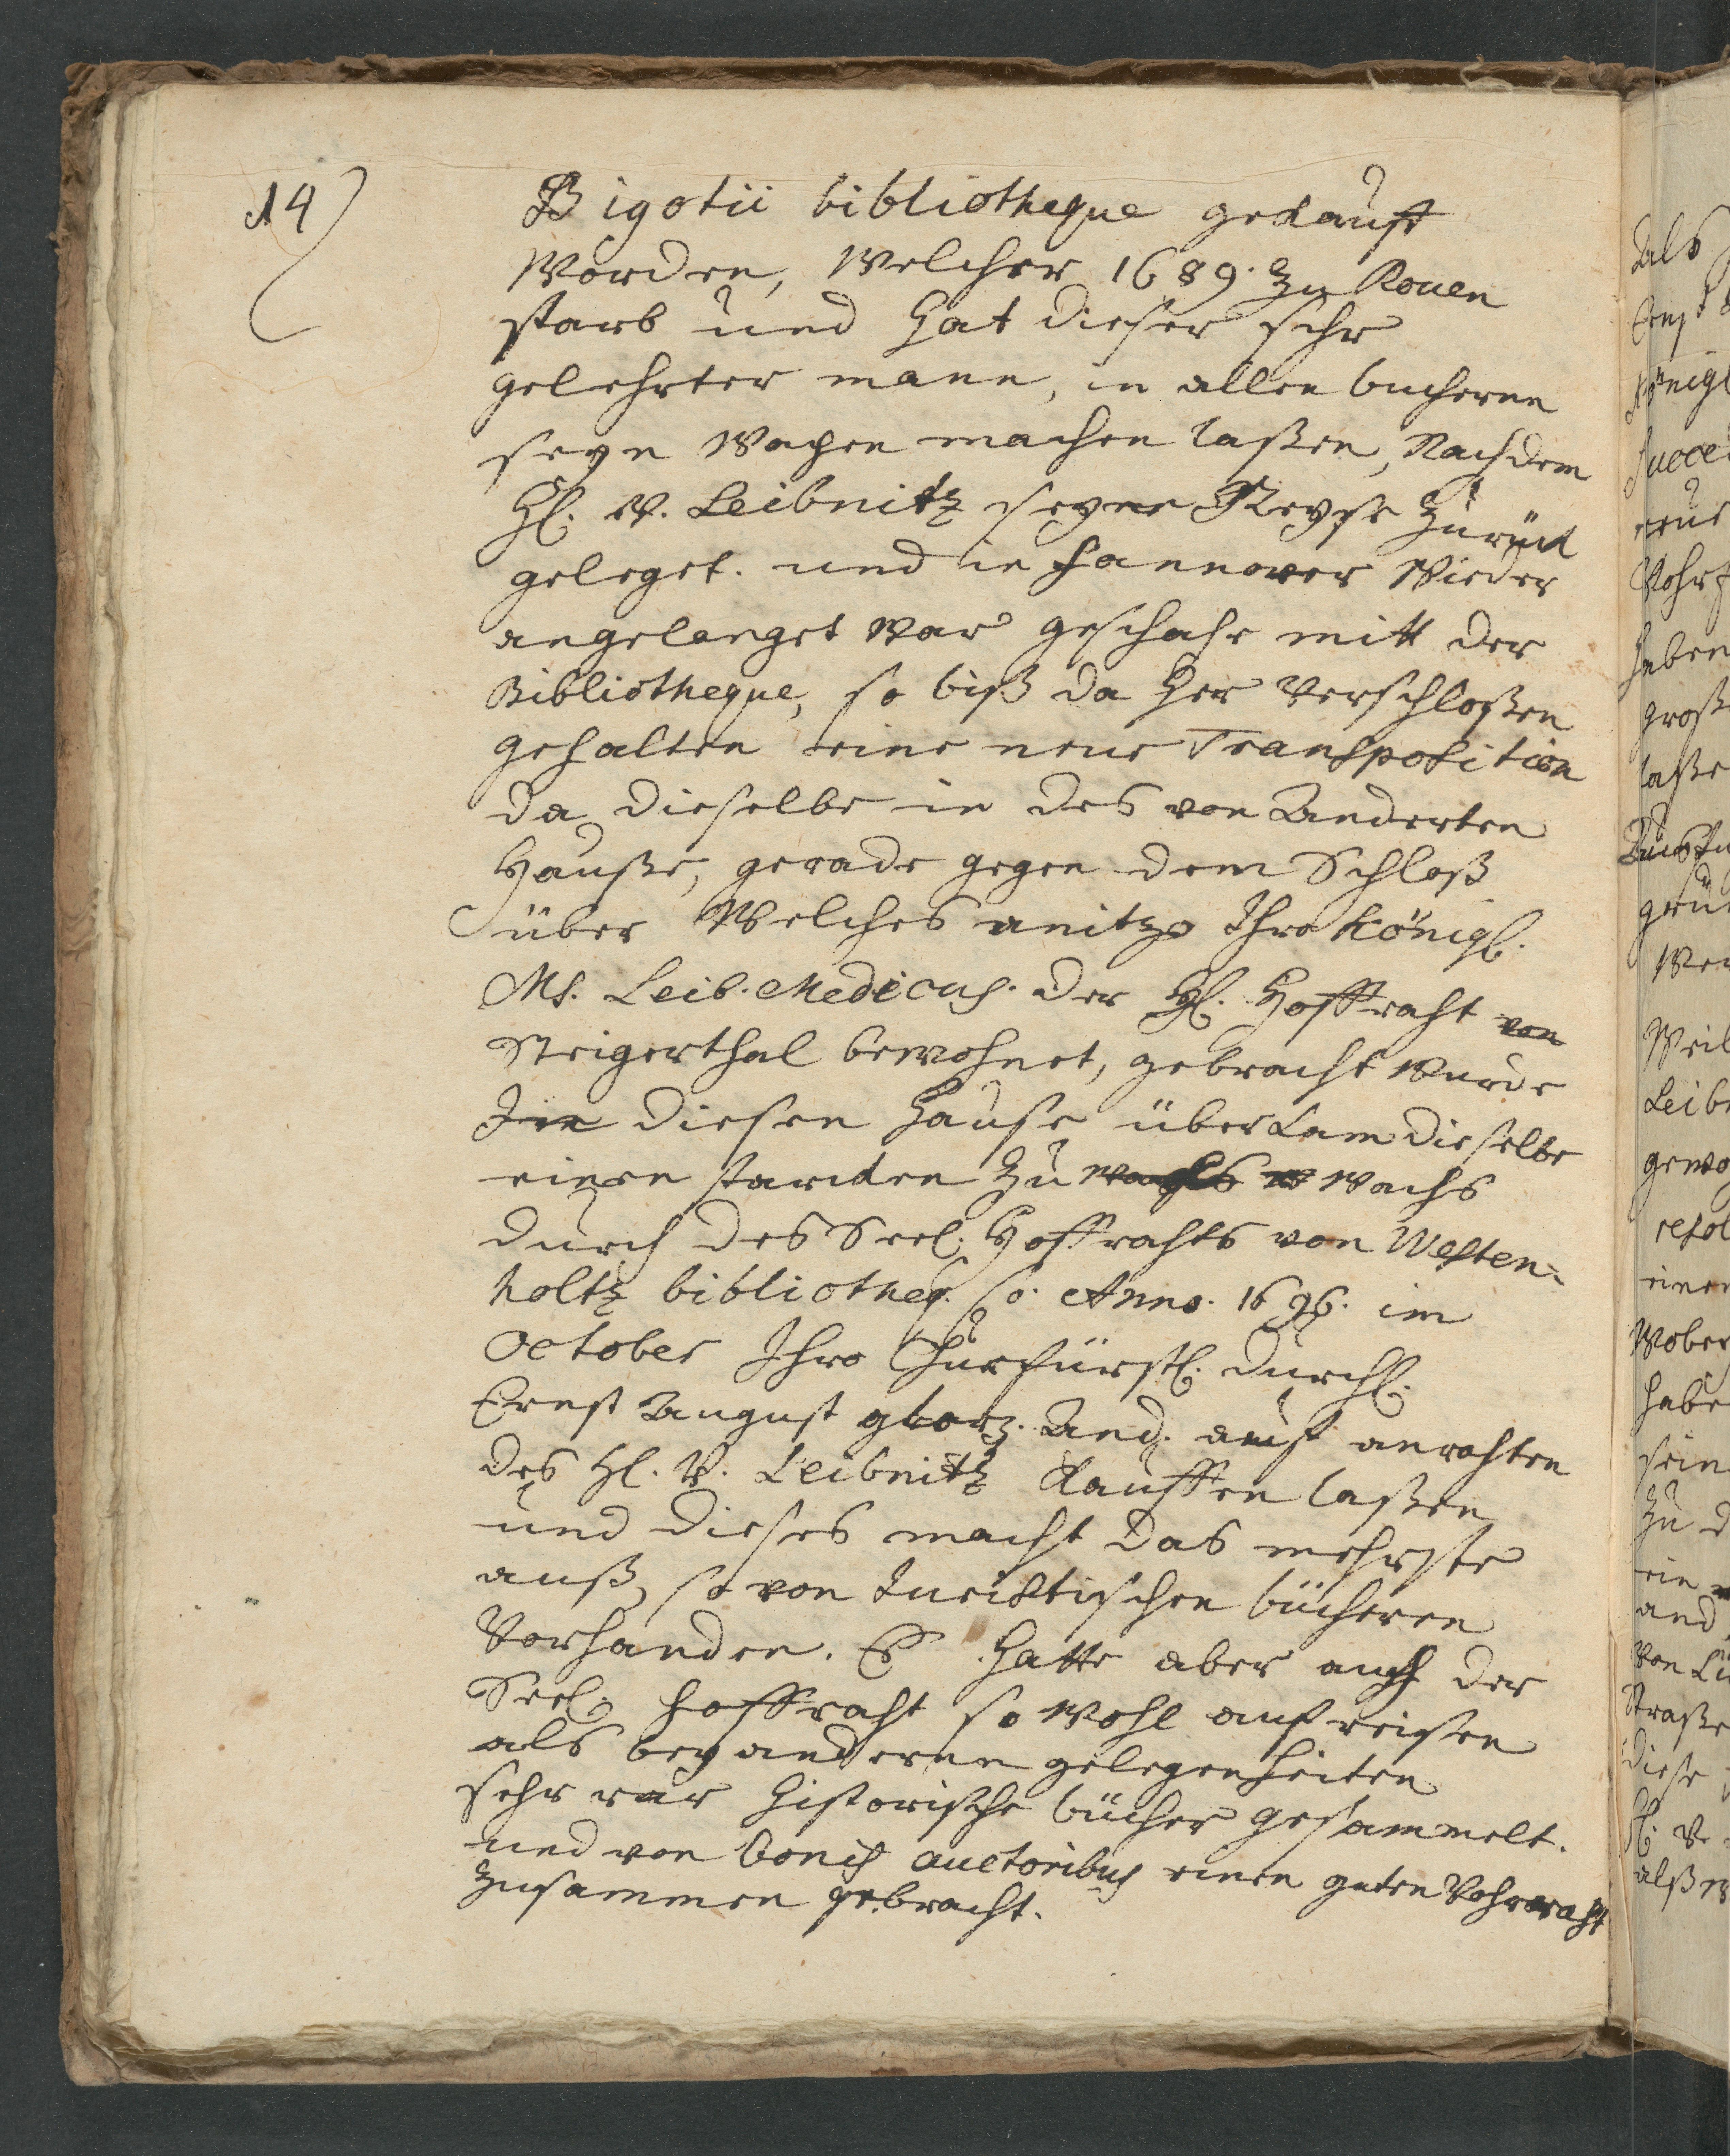 14)
Bigotii bibliotheque gekauft
Worden, Welcher 1689. zu Rouen
starb und hat dieser sehr
gelehrter mann, in allen buchern
seyn Wapen machen laßen, Nachdem
H. V. Leibnitz seyne Reyse zurück
geleget. und in Hannover Wieder
angelanget War geschahe mitt der
Bibliotheque, so biß da her verschloßen
gehalten eine neue Transposition
da dieselbe in des von Anderten
Hauße, gerade gegen dem Schloß
über Welches anitzo Ihro Königl.
Ms. Leib-Medicus. der H. Hoffraht von
Steigerthal bewohnet, gebracht wurde
In diesen Hause überkam dieselbe
einen starcken Zu Wachs
durch des Seel. Hoffrahts von Westen-
holtz bibliotheq. so. Anno. 1696. im
October Ihro Churfürstl. Durchl.
Ernst August glorz. And. auf anrahten
des H. V. Leibnitz kauffen laßen
und dieses macht das mehrste
auß, so von Juristischen büchern
Vorhanden. Es hatte aber auch der
Seel. Hoffraht so Wohl auf reisen
als bey anderen gelegenheiten
sehr rar historische bücher gesammelt.
und von bonis auctoribus einen guten Vohrraht
zusammen gebracht.